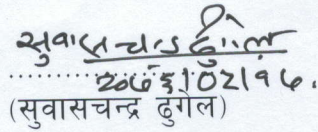 सुवासचन्द्र ढुंगेल
२०७६।०२।१७.
(सुवासचन्द्र ढुंगेल)